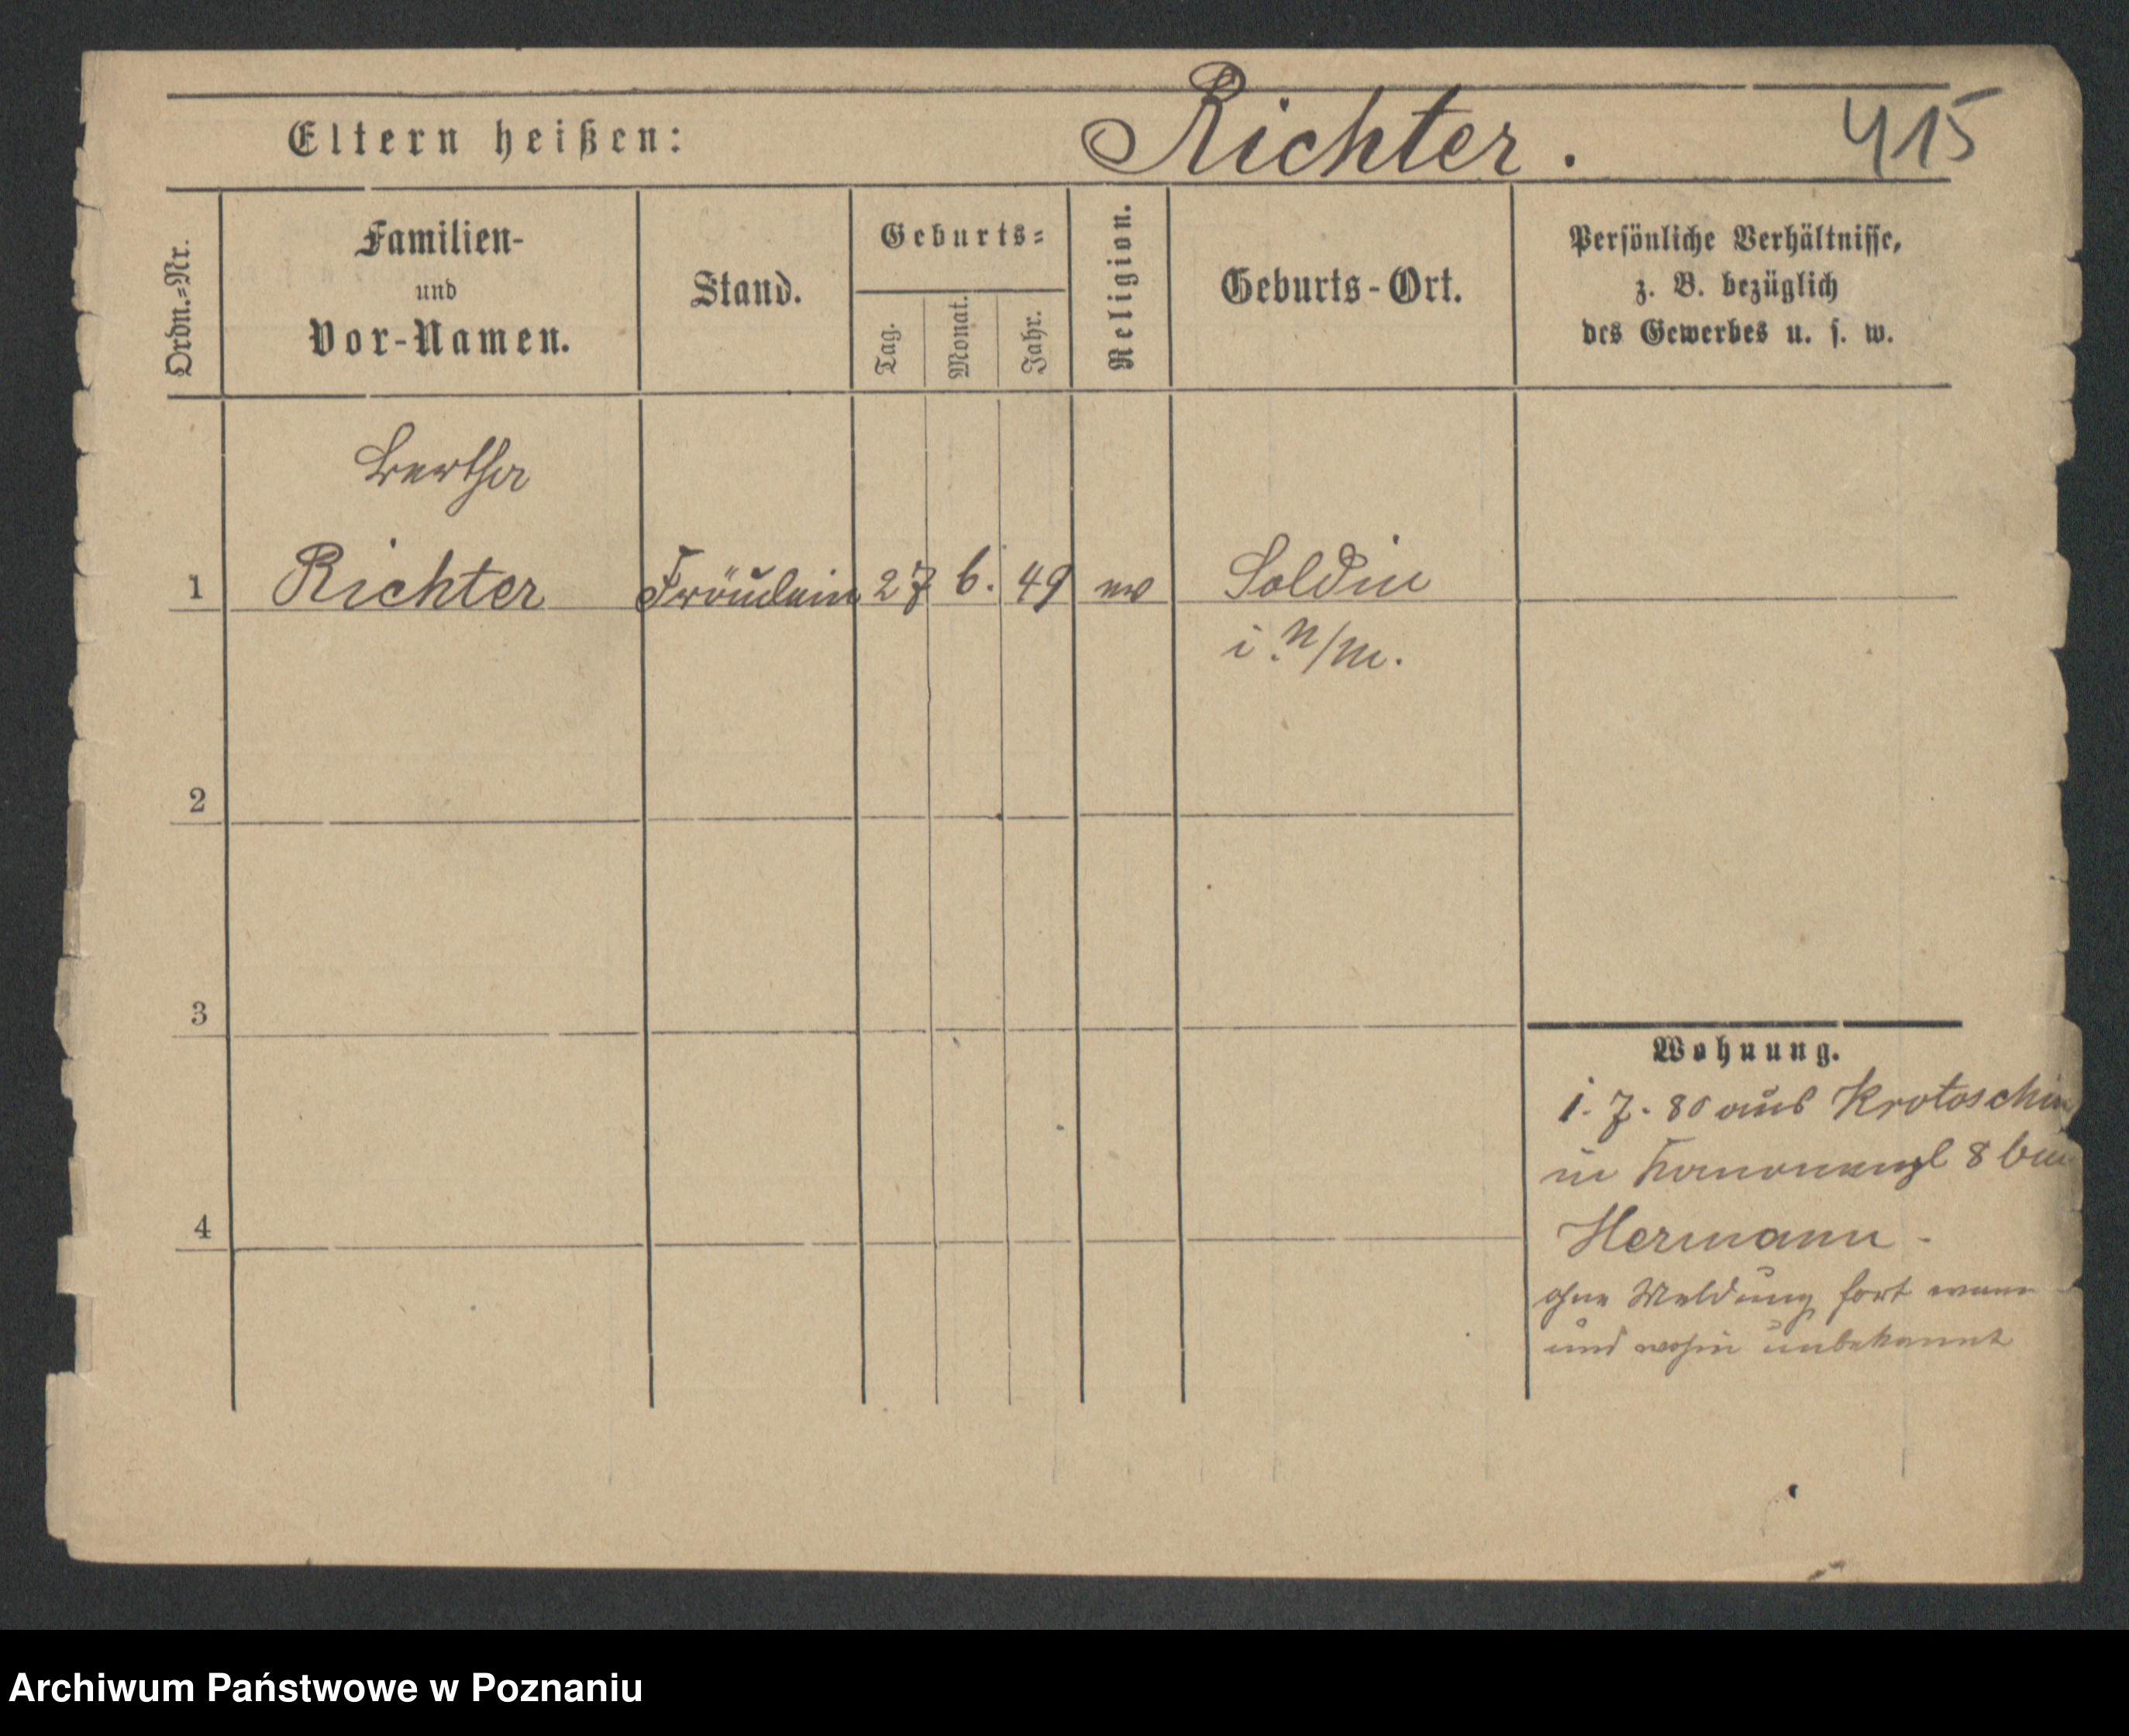 Eltern heißen: Richter. 415
Ordn.=Nr.
Familien-
und
Vor-Namen.
Stand.
Geburts=
Tag.
Monat.
Jahr.
Religion.
Geburts-Ort.
Persönliche Verhältnisse,
z. B. bezüglich
des Gewerbes u. s. w.
Bertha
1 Richter Fräulein 27 6. 49 ev Soldin
i. N/M.
2
3
4
Wohnung.
1. 7. 80 aus Krotoschin
in Kanonenpl 8 bei
Hermann -
ohne Meldung fort wann
und wohin unbekannt
Archiwum Państwowe w Poznaniu